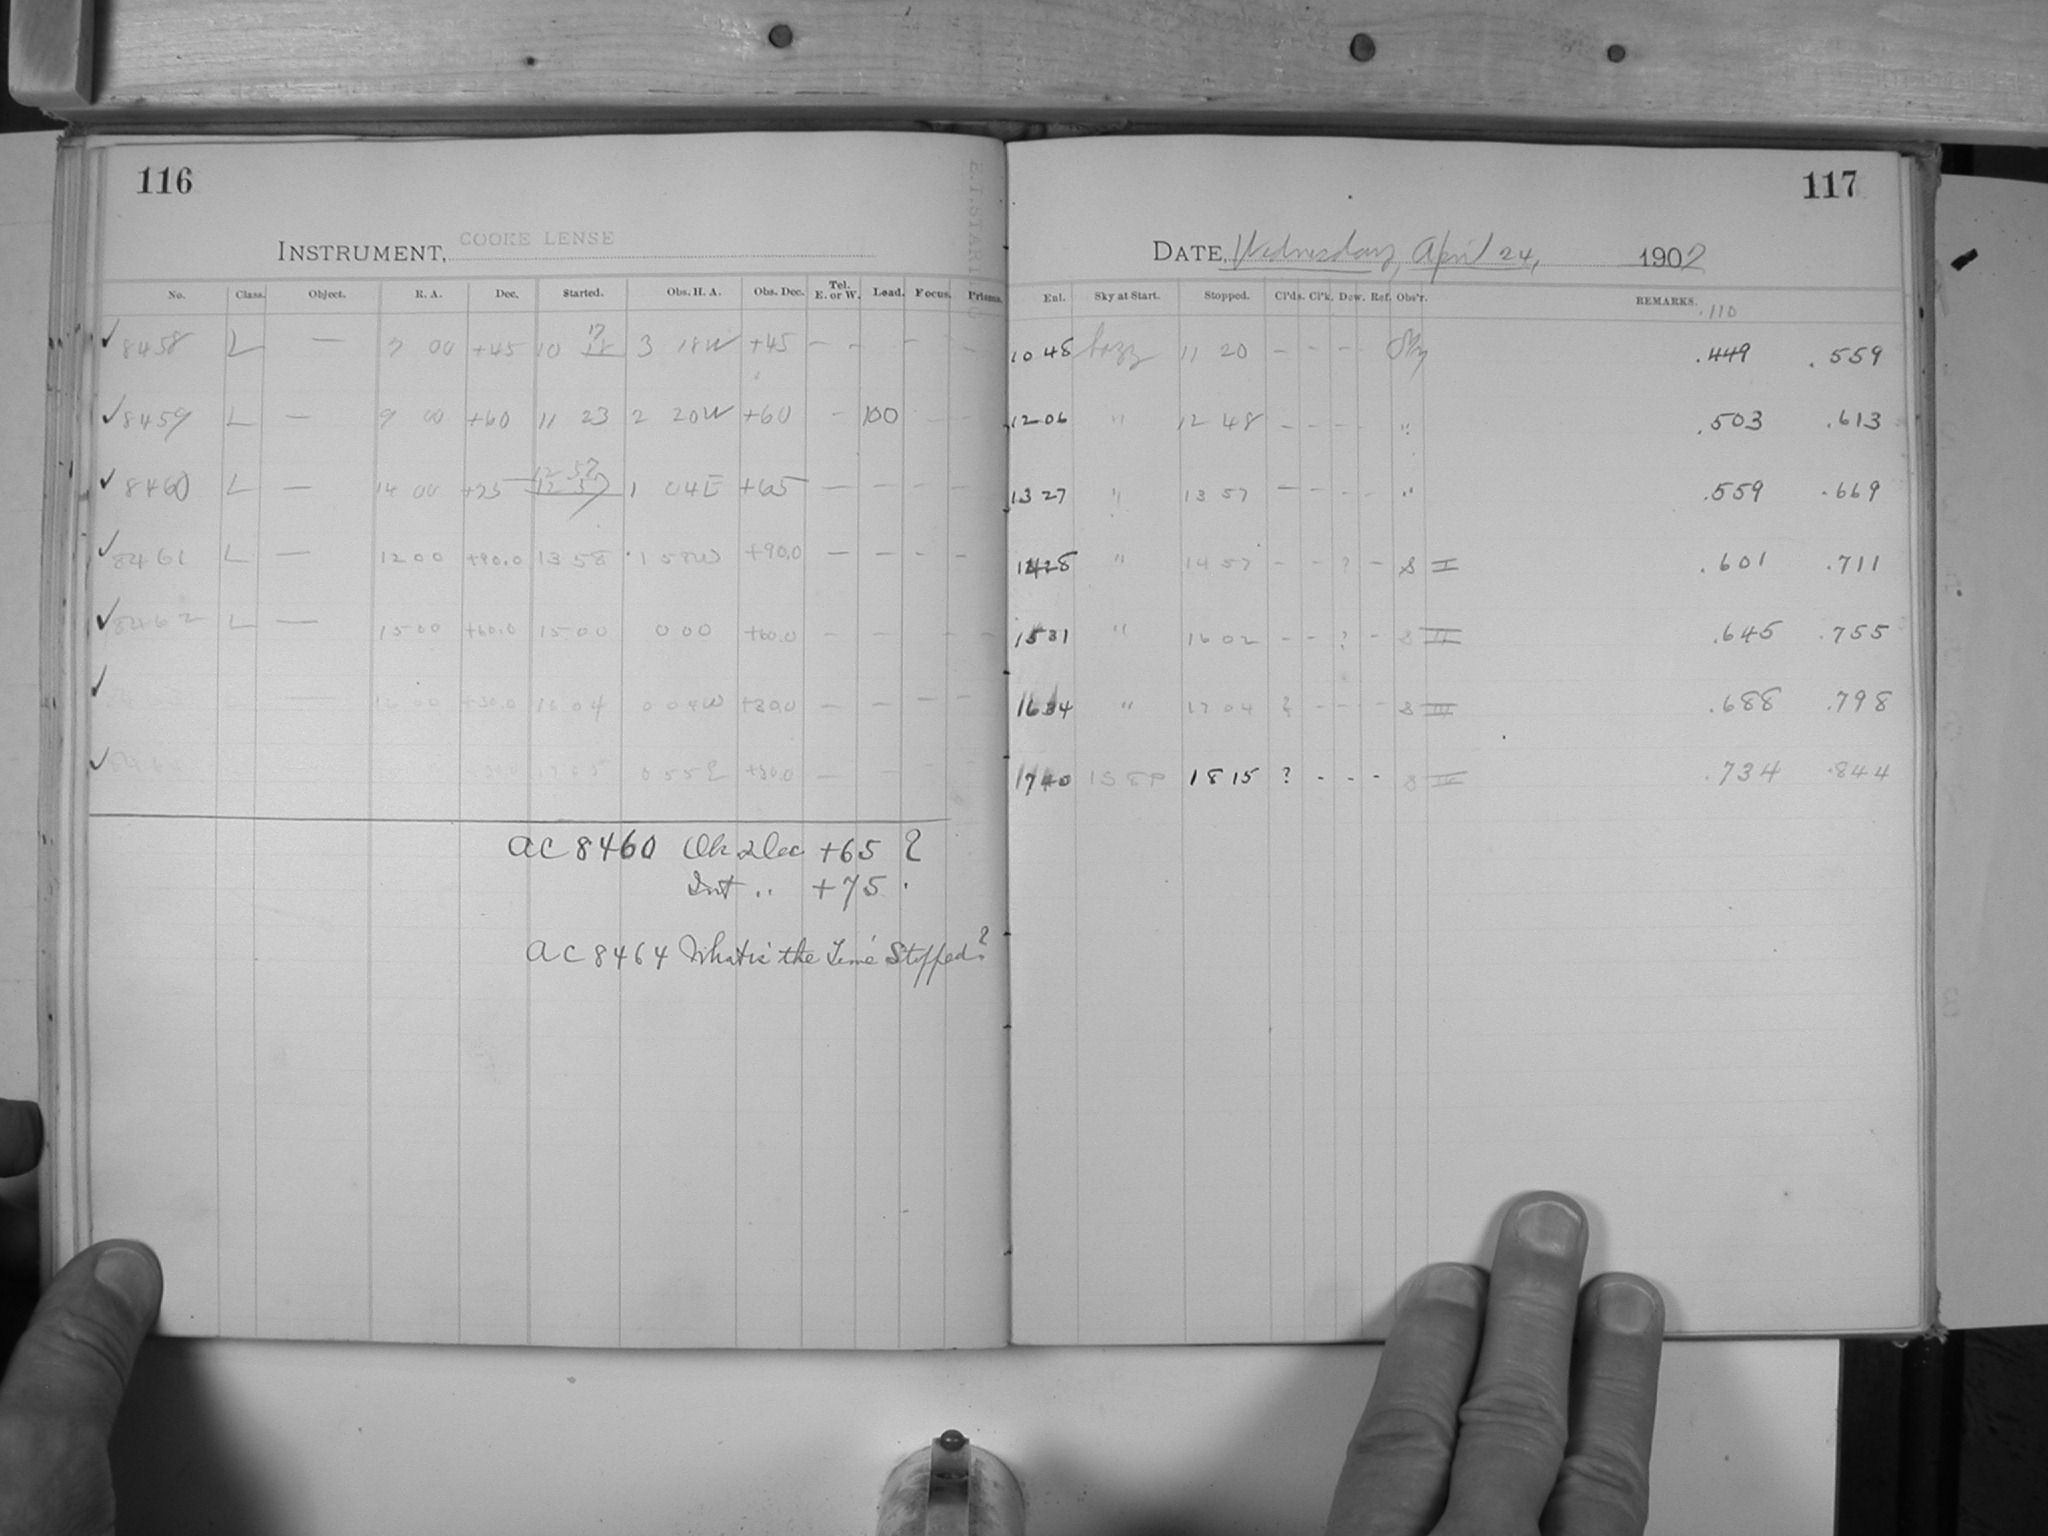 116
INSTRUMENT, COOKE LENSE
No. Class. Object. R. A. Dec. Started. Obs. H. A. Obs. Dec. Tel. E. or W. Load. Focus. Prisms.
✓ 8458 L — 00 +45 10 17 3 18W +45 — — — —
✓ 8459 L — 9 00 +60 11 23 2 20W +60 - 100 — —
✓ 8460 L — 14 00 +75 12 57 1 04E +65 — — — —
✓ 8461 L — 12 00 +90.0 13 58 1 58W +90.0 — — — —
✓ 8462 L — 15 00 +60.0 15 00 0 00 +60.0 — — — —
✓ — 16 00 +30.0 16 04 0 04W +30.0 — — — —
✓ +30.0 17 05 0 55E +30.0 — — —
AC 8460 Ob Dec +65 ?
Int " +75 .
AC 8464 What is the Time Stopped?
117
DATE, Wednesday, April 24, 1907
Enl. Sky at Start. Stopped. Cl'ds. Cl'k. Dew. Ref. Obs'r. REMARKS.
.110
10 48 hazy 11 20 - - - - .449 .559
12 06 " 12 48 - - - - " .503 .613
13 27 " 13 57 - - - - " .559 .669
1428 " 14 57 - - ? - S I .601 .711
1531 " 16 02 - - ? - S II .645 .755
1634 " 17 04 ? - - - S III .688 .798
1740 18 15 ? - - - S .734 .844